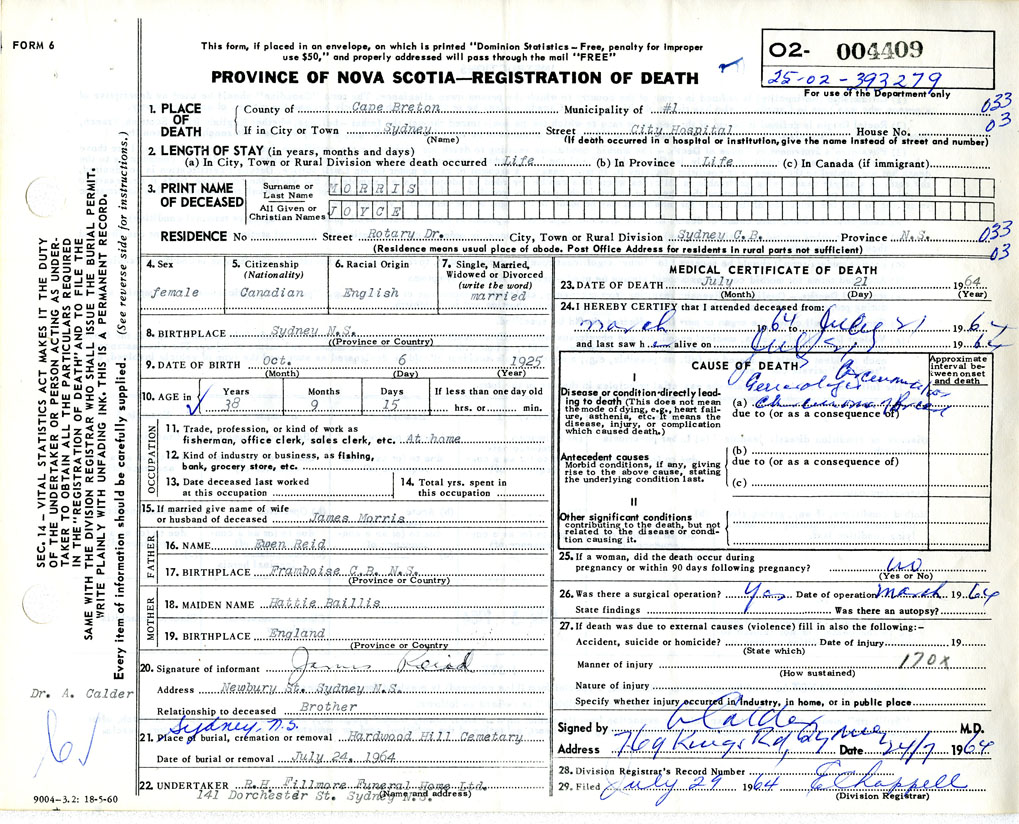 FORM 6
This form, if placed in an envelope, on which is printed "Dominion Statistics – Free, penalty for improper
use $50," and properly addressed will pass through the mail "FREE"
PROVINCE OF NOVA SCOTIA—REGISTRATION OF DEATH
02- 004409
25-02-393279
For use of the Department only
SEC. 14 – VITAL STATISTICS ACT MAKES IT THE DUTY
OF THE UNDERTAKER OR PERSON ACTING AS UNDER-
TAKER TO OBTAIN ALL THE PARTICULARS REQUIRED
IN THE "REGISTRATION OF DEATH" AND TO FILE THE
SAME WITH THE DIVISION REGISTRAR WHO SHALL ISSUE THE BURIAL PERMIT.
WRITE PLAINLY WITH UNFADING INK. THIS IS A PERMANENT RECORD.
Every item of information should be carefully supplied. (See reverse side for instructions.)
1. PLACE OF DEATH County of Cape Breton Municipality of #1 033
If in City or Town Sydney Street City Hospital House No. 03
(Name) (If death occurred in a hospital or institution, give the name instead of street and number)
2. LENGTH OF STAY (in years, months and days)
(a) In City, Town or Rural Division where death occurred Life (b) In Province Life (c) In Canada (if immigrant)
3. PRINT NAME OF DECEASED Surname or Last Name MORRIS
All Given or Christian Names JOYCE
RESIDENCE No Street Rotary Dr. City, Town or Rural Division Sydney C.B. Province N.S. 033
(Residence means usual place of abode. Post Office Address for residents in rural parts not sufficient) 03
4. Sex female
5. Citizenship (Nationality) Canadian
6. Racial Origin English
7. Single, Married, Widowed or Divorced (write the word) married
8. BIRTHPLACE Sydney N.S.
(Province or Country)
9. DATE OF BIRTH Oct. 6 1925
(Month) (Day) (Year)
10. AGE in Years 38 Months 9 Days 15 If less than one day old hrs. or min.
OCCUPATION
11. Trade, profession, or kind of work as
fisherman, office clerk, sales clerk, etc. At home
12. Kind of industry or business, as fishing,
bank, grocery store, etc.
13. Date deceased last worked at this occupation
14. Total yrs. spent in this occupation
15. If married give name of wife
or husband of deceased James Morris
FATHER
16. NAME Ewen Reid
17. BIRTHPLACE Framboise C.B. N.S.
(Province or Country)
MOTHER
18. MAIDEN NAME Hattie Baillis
19. BIRTHPLACE England
(Province or Country
20. Signature of informant James Reid
Address Newbury St. Sydney N.S.
Relationship to deceased Brother
Sydney, N.S.
21. Place of burial, cremation or removal Hardwood Hill Cemetary
Date of burial or removal July 24, 1964
22. UNDERTAKER R.H. Fillmore Funeral Home Ltd.
141 Dorchester St. Sydney N.S.
(Name and address)
Dr. A. Calder
9004-3.2: 18-5-60
MEDICAL CERTIFICATE OF DEATH
23. DATE OF DEATH July 21 1964
(Month) (Day) (Year)
24. I HEREBY CERTIFY that I attended deceased from:
March 1964 to July 21 1964
and last saw her alive on July 1964
CAUSE OF DEATH
Approximate interval between onset and death
I
Disease or condition directly leading to death (This does not mean the mode of dying, e.g., heart failure, asthenia, etc. It means the disease, injury, or complication which caused death.)
Carcinoma
(a)
due to (or as a consequence of)
Antecedent causes
Morbid conditions, if any, giving rise to the above cause, stating the underlying condition last.
(b)
due to (or as a consequence of)
(c)
II
Other significant conditions
contributing to the death, but not related to the disease or condition causing it.
25. If a woman, did the death occur during
pregnancy or within 90 days following pregnancy? no
(Yes or No)
26. Was there a surgical operation? Yes Date of operation March 1964
State findings Was there an autopsy?
27. If death was due to external causes (violence) fill in also the following:–
Accident, suicide or homicide? Date of injury 19
(State which)
Manner of injury 170X
(How sustained)
Nature of injury
Specify whether injury occurred in industry, in home, or in public place
Signed by A Calder M.D.
Address 769 Kings Rd, Sydney Date 24/7 1964
28. Division Registrar's Record Number
29. Filed July 29 1964 E Chappell
(Division Registrar)